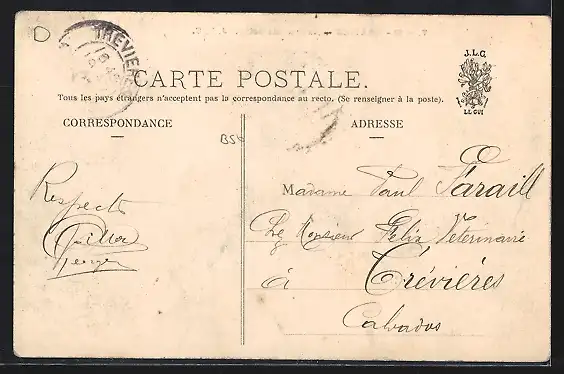 D
TREVIERES
J.L.C.
LE GUI
CARTE POSTALE.
Tous les pays étrangers n'acceptent pas la correspondance au recto. (Se renseigner à la poste).
CORRESPONDANCE
ADRESSE
BS6
Respects
Madame Paul Faraill
Monsieur Felix Veterinaire
à Trévières
Calvados